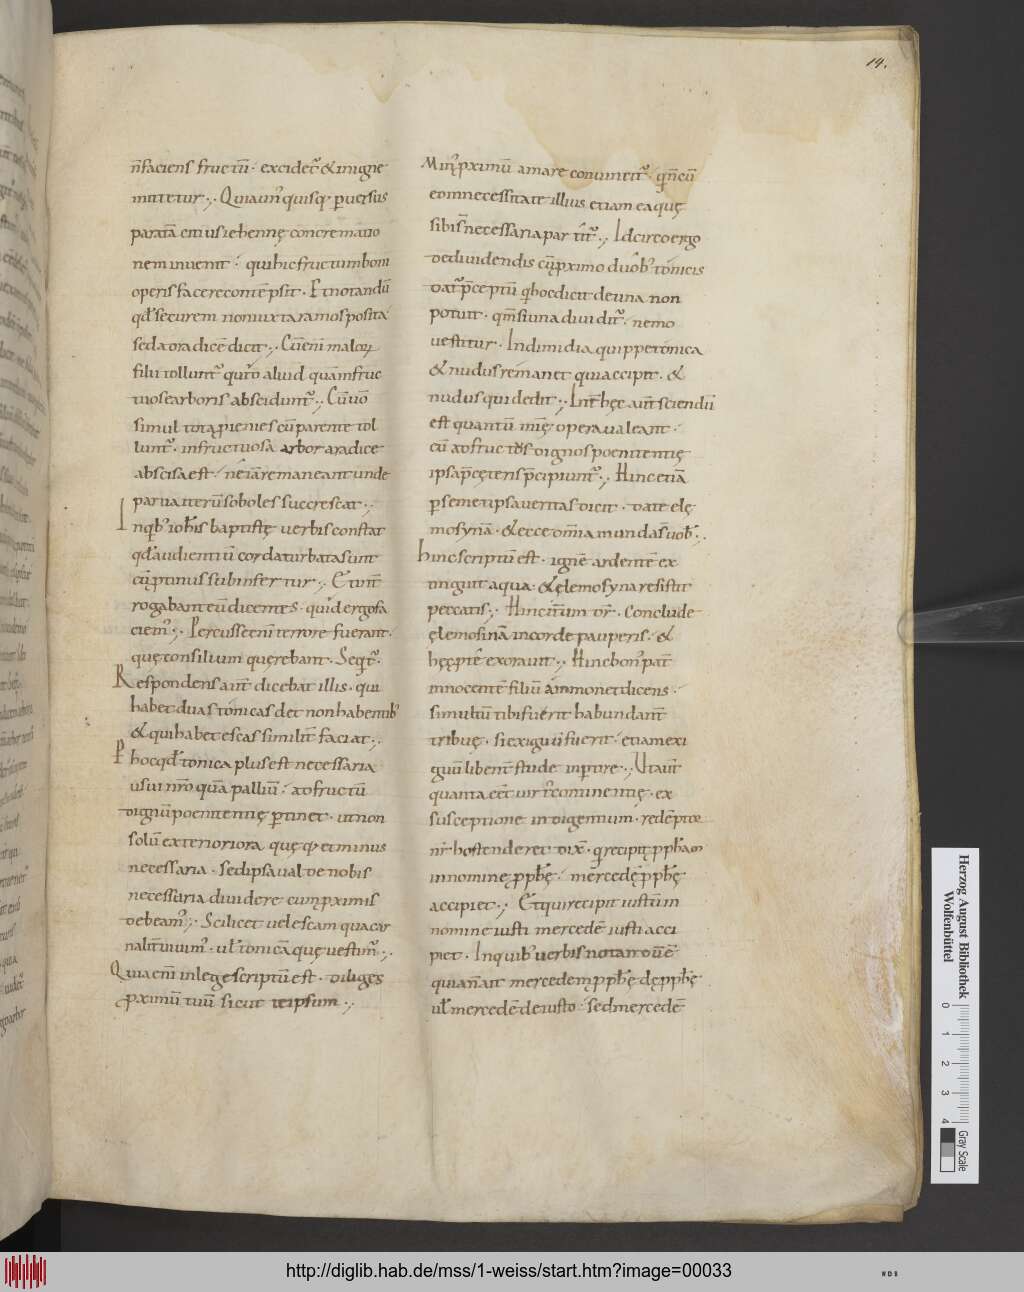 14.
n̄ faciens fructū· excidet̄ & inigne
mittetur·, Quia un' quisq· peruersus
paratā citius iehennę concremano
nem inuenit· qui hic fructum boni
operis facere contēpsit· Et notandū
qd̄ securem non iuxta ramos positā
sed ad radicē dicit·, Cū enī maloꝝ
filii tollunt̄ quid aliud quā infruc
tuose arboris absciduntr̄·, Cū uō
simul tota p̱genies cū parente tol
lunt̄· infructuosa arbor aradice
abscisa est· ne iā remaneant unde
parua iterū soboles succrescat·,
Inqb' ioh̄is baptistę uerbis constat
qd̄ audientiū corda turbata sunt
cū p̱tinus subinfertur·, Et int̄
rogabant eū dicentes· quid ergo fa
ciem'·, Percusse enī terrore fuerant·
quę consilium quęrebant· Seqt̄·
Respondens aut̄ dicebat illis· qui
habet duas tonicas det non habentib'
& qui habet escas similit̄ faciat·,
P hoc qd̄ tonica plus est necessaria
usui nr̄o quā palliū· ad fructū
dignū poenitentię ptinet· ut non
solū exteriora quęq· et minus
necessaria· sed ipsa ualde nobis
necessaria diuidere cum p̱ximis
debeam'·, Scilicet uel escam qua car
nalit̄ uiuim'· ul̄ tonicā quę uestim'·,
Quia enī in lege scriptū est· diliges
p̱ximū tuū sicut te ipsum·,
Min' p̱ximū amare conuincitr̄· qn̄ cū
eo in necessitate illius etiam ea quę
sibi sn̄ necessaria partitr̄·, Idcirco ergo
de diuidendis cū p̱ximo duob' tonicis
dat p̄ceptū q hoc dici de una non
potuit· qm̄ si una diuiditr̄· nemo
uestitur· In dimidia quippe tonica
& nudus remanet qui accipit· &
nudus qui dedit·, Int̄ hęc aut̄ sciendū
est quantū mi͞ę opera ualeant·
cū ad fructus dignos poenitentię
ipsa p̄ ceteris p̄cipiunt̄·, Hinc etiā
p semet ipsa ueritas dicit· date elę
mosynā· & ecce om̄ia munda s̄ uob'·,
Hinc scriptū est· ignē ardentē ex
tinguit aqua· & ęlemosyna resistit
peccatis·, Hinc it̄um dr̄· conclude
ęlemosinā in corde pauperis· &
hęc p te exorauit·, Hinc bon' pat̄
innocentē filiū ammonet dicens·
si multū tibi fuerit habundant̄
tribuę· si exiguū fuerit· etiam exi
guū libent̄ stude inp̱tire·, Ut aut̄
quanta eēt uirt' continentię· ex
susceptione indigentium· redēptor
nr̄ hostenderet dix̄· q recipit p̱ph̄am
in nomine p̱ph̄ę· mercedē p̱ph̄ę
accipiet·, Et qui recipit iustū in
nomine iusti mercedē iusti acci
piet· In quib' uerbis notandū ē
quia n̄ ait mercedem p̱ph̄ę de p̱ph̄ę
ul̄ mercedē de iusto· sed mercedē
Herzog August Bibliothek
Wolfenbüttel
0 1 2 3 4
Gray Scale
http://diglib.hab.de/mss/1-weiss/start.htm?image=00033